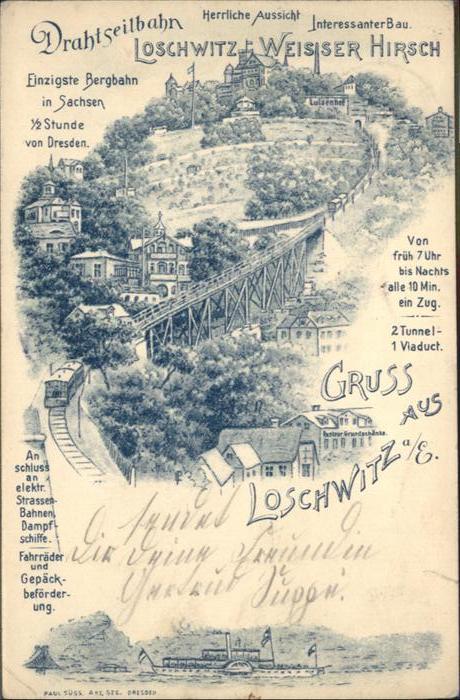 Drahtseilbahn
Herrliche Aussicht
Interessanter Bau.
LOSCHWITZ-WEISSER HIRSCH
Einzigste Bergbahn
in Sachsen
½ Stunde
von Dresden.
Luisenhof
Von
früh 7 Uhr
bis Nachts
alle 10 Min.
ein Zug.
2 Tunnel-
1 Viaduct.
GRUSS
AUS
LOSCHWITZ a/E.
An
schluss
an
elektr.
Strassen-
Bahnen,
Dampf-
schiffe.
Fahrräder
und
Gepäck-
beförder-
ung.
sendet
Dir Deine Freundin
Gertrud
PAUL SÜSS. DRESDEN